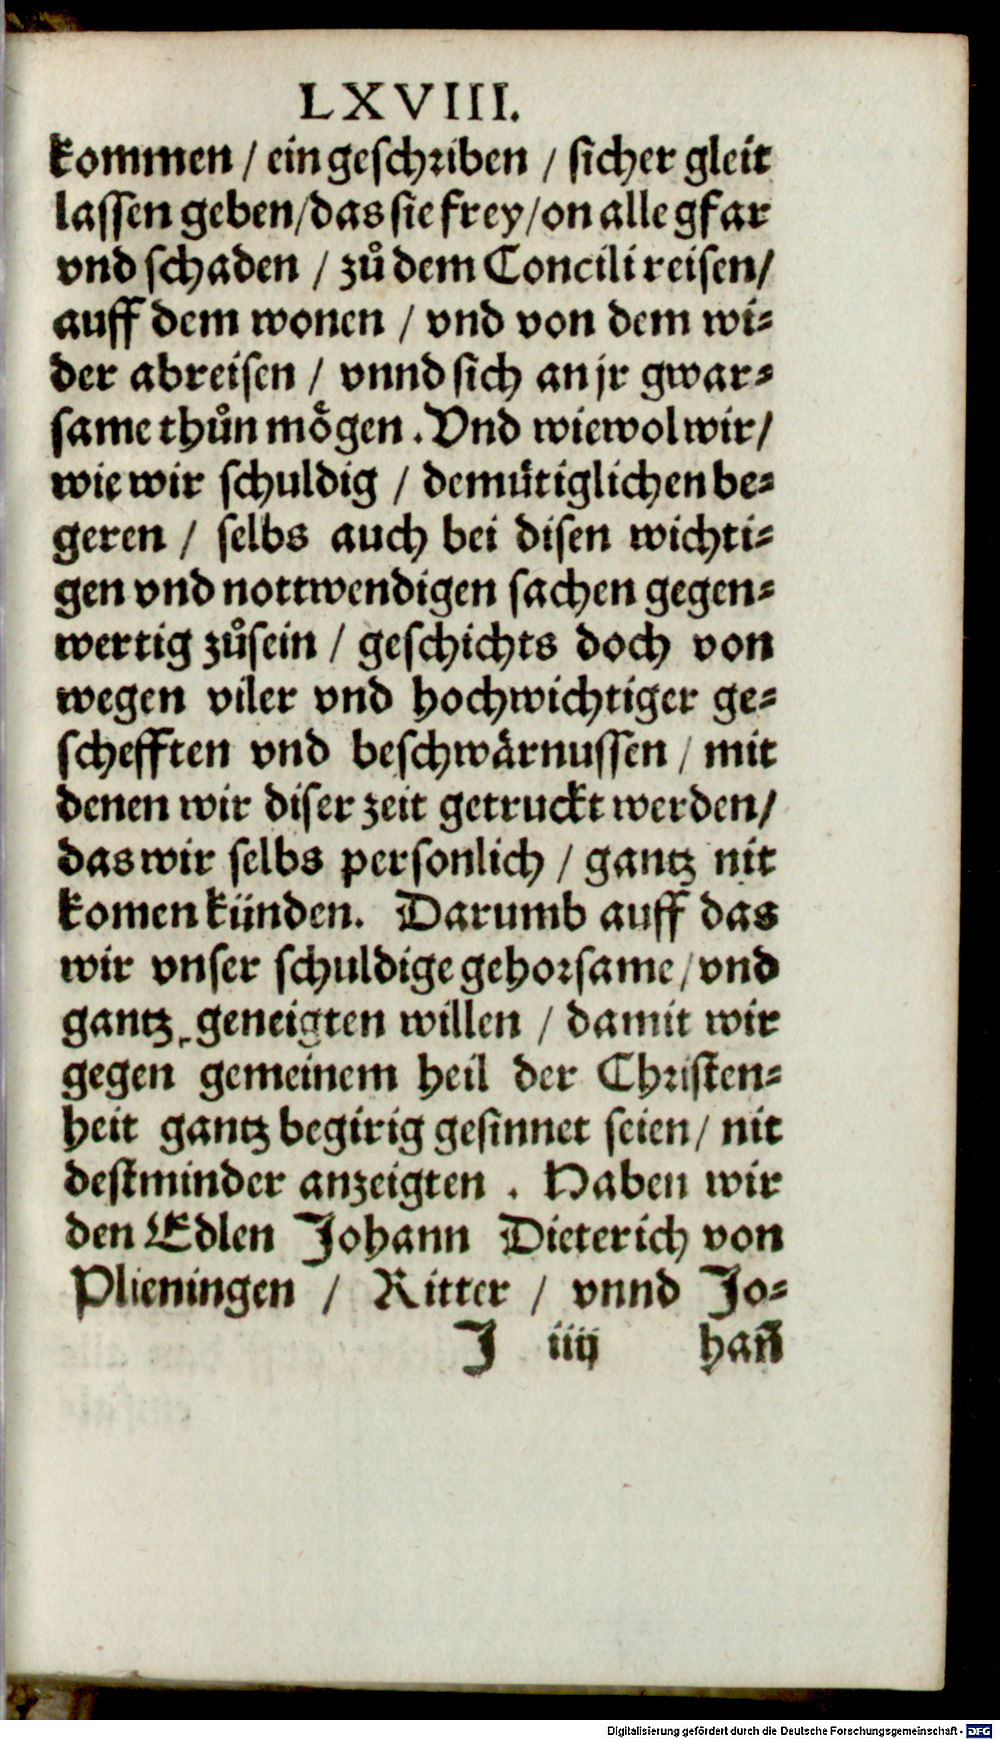 LXVIII.
kommen / ein geschriben / sicher gleit
lassen geben/das sie frey/on alle gfar
vnd schaden / zů dem Concili reisen/
auff dem wonen / vnd von dem wi⸗
der abreisen / vnnd sich an jr gwar⸗
same thůn moͤgen. Vnd wiewol wir/
wie wir schuldig / demuͤtiglichen be⸗
geren / selbs auch bei disen wichti⸗
gen vnd nottwendigen sachen gegen⸗
wertig zůsein / geschichts doch von
wegen viler vnd hochwichtiger ge⸗
schefften vnd beschwaͤrnussen / mit
denen wir diser zeit getruckt werden/
das wir selbs personlich / gantz nit
komen künden. Darumb auff das
wir vnser schuldige gehorsame/vnd
gantz geneigten willen / damit wir
gegen gemeinem heil der Christen⸗
heit gantz begirig gesinnet seien/ nit
destminder anzeigten . Haben wir
den Edlen Johann Dieterich von
Plieningen / Ritter / vnnd Jo⸗
J iiij han̄
Digitalisierung gefördert durch die Deutsche Forschungsgemeinschaft - DFG